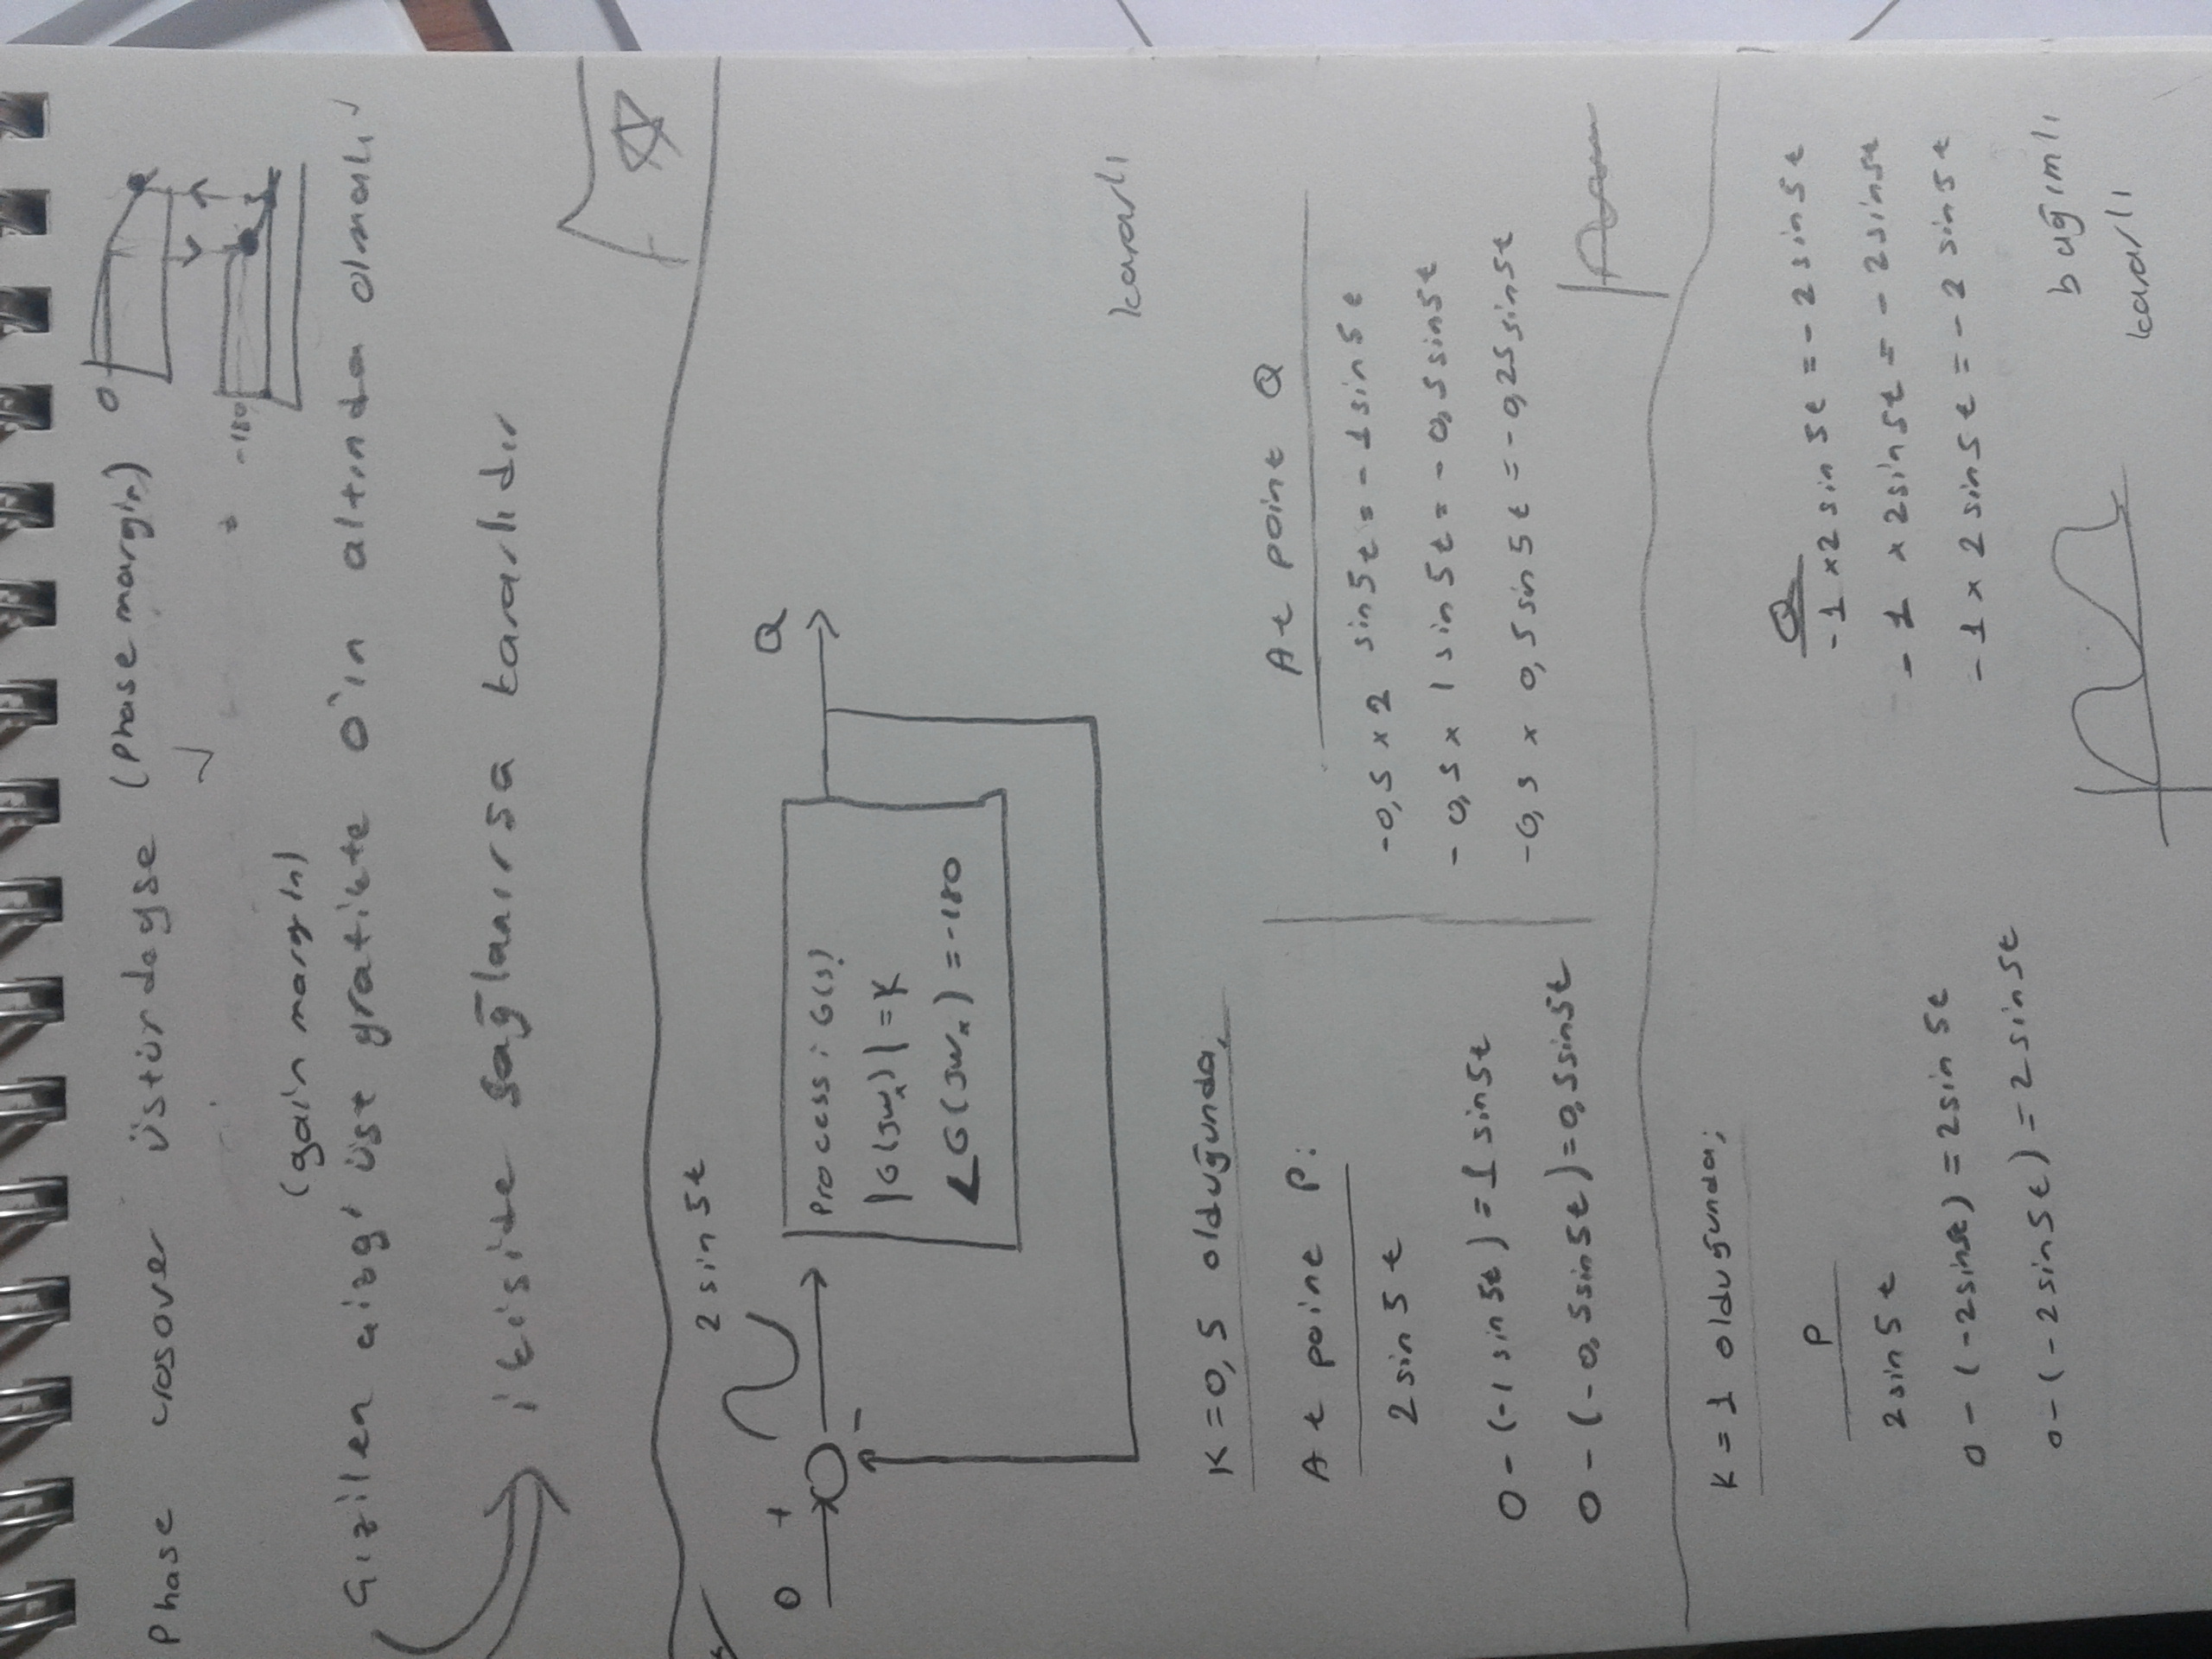 Phase crosover üstündeyse (Phase margin)
0
-180
(gain margin)
Çizilen çizgi üst grafikte 0'ın altında olmalı
ikiside sağlanırsa kararlıdır
2 sin 5t
0 + Q
-
Process: G(s)
|G(jwx)| = K
∠G(jwx) = -180
kararlı
K = 0,5 olduğunda,
At point P: At point Q
2 sin 5t -0,5 x 2 sin 5t = -1 sin 5t
0 - (-1 sin 5t) = 1 sin 5t -0,5 x 1 sin 5t = -0,5 sin 5t
0 - (-0,5 sin 5t) = 0,5 sin 5t -0,5 x 0,5 sin 5t = -0,25 sin 5t
K = 1 olduğunda;
P Q
2 sin 5t -1 x 2 sin 5t = -2 sin 5t
0 - (-2 sin 5t) = 2 sin 5t -1 x 2 sin 5t = -2 sin 5t
0 - (-2 sin 5t) = 2 sin 5t -1 x 2 sin 5t = -2 sin 5t
bağımlı
kararlı